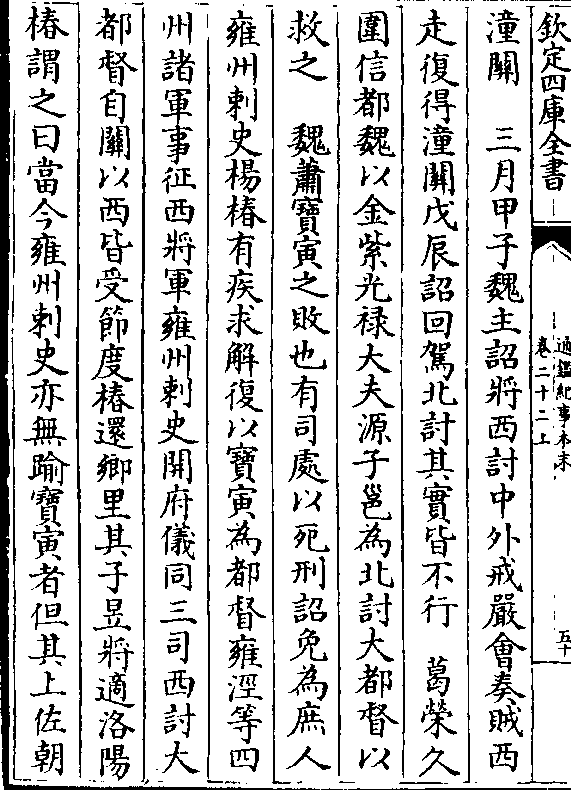 欽定四庫全書
通鑑紀事本末
卷二十二上
五十
潼關　三月甲子魏主詔將西討中外戒嚴會奏賊西
走復得潼關戊辰詔回駕北討其實皆不行　葛榮久
圍信都魏以金紫光禄大夫源子邕為北討大都督以
救之　魏蕭寶寅之敗也有司處以死刑詔免為庶人
雍州刺史楊椿有疾求解復以寶寅為都督雍涇等四
州諸軍事征西將軍雍州刺史開府儀同三司西討大
都督自關以西皆受節度椿還鄉里其子昱將適洛陽
椿謂之曰當今雍州刺史亦無踰寶寅者但其上佐朝